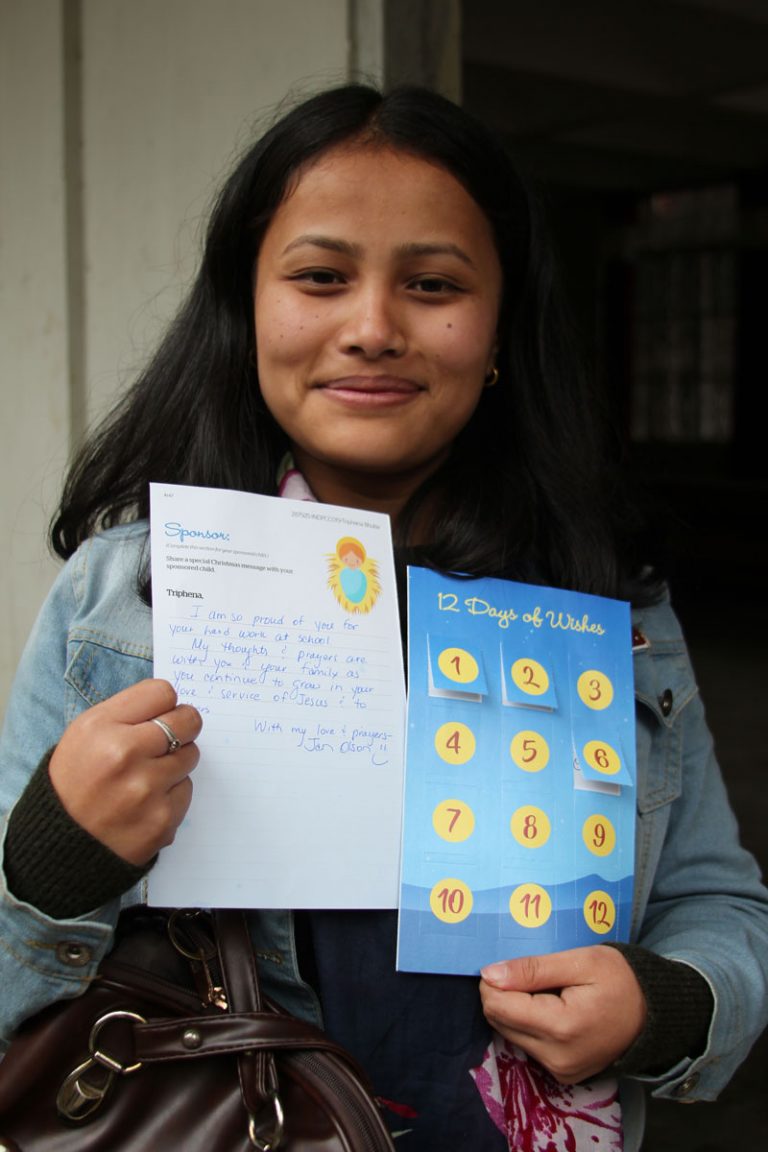 Sponsor:
(Complete this section for your sponsored child.)
Share a special Christmas message with your
sponsored child.
Triphena,
I am so proud of you for
your hard work at school
My thoughts & prayers are
with you & your family as
you continue to grow in your
love & service of Jesus & to
With my love & prayers-
Jan Olson
12 Days of Wishes
1 2 3
4 5 6
7 8 9
10 11 12